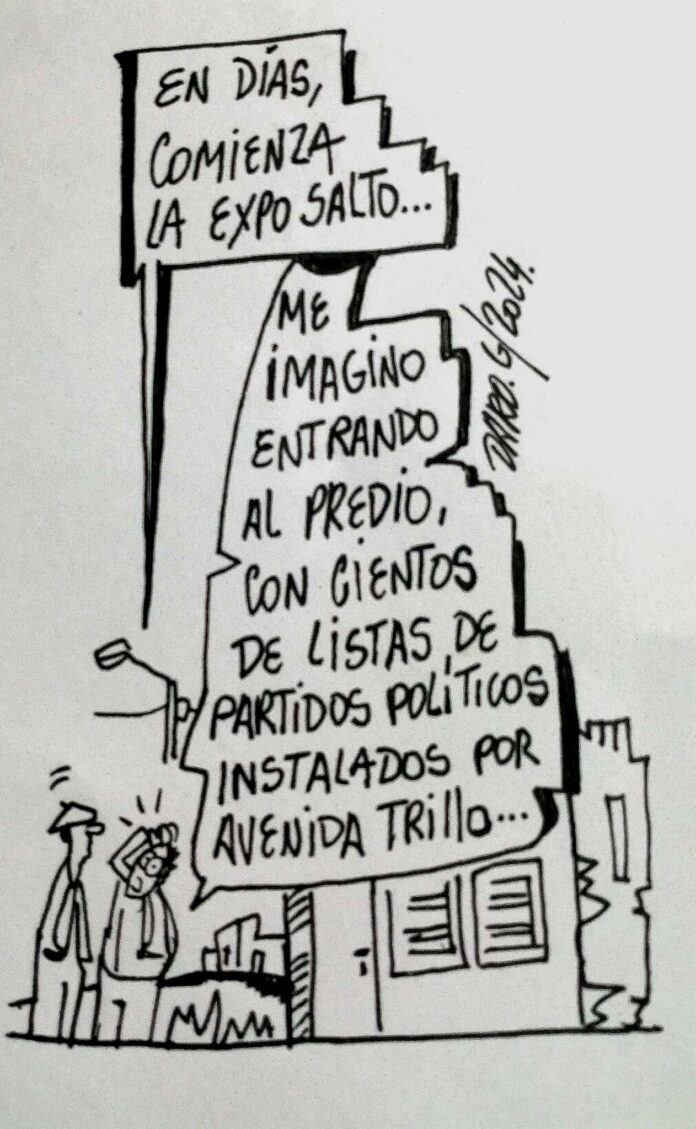 EN DÍAS,
COMIENZA
LA EXPO SALTO...
ME
IMAGINO
ENTRANDO
AL PREDIO,
CON CIENTOS
DE LISTAS DE
PARTIDOS POLÍTICOS
INSTALADOS POR
AVENIDA TRILLO...